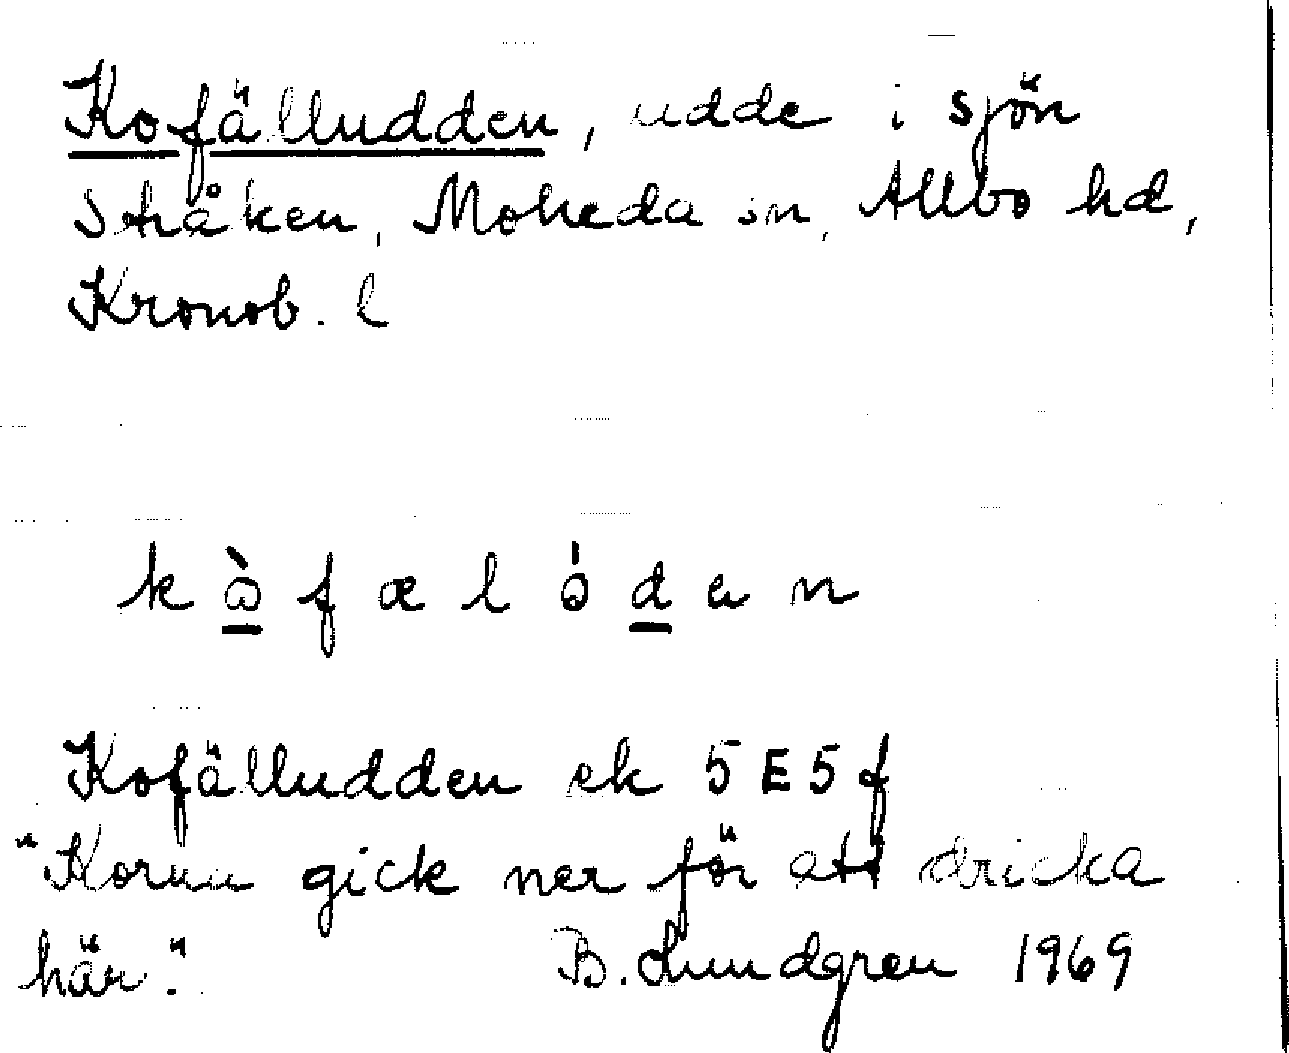 Kofälludden, udde i sjön
Stråken, Moheda sn, Allbo hd,
Kronob. l
k ò f æ l ó d a n
Kofälludden ek 5E5f
"Korna gick ner för att dricka
här."
B. Lundgren 1969